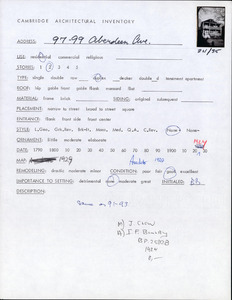 CAMBRIDGE ARCHITECTURAL INVENTORY
ADDRESS: 97-99 Aberdeen Ave.
24/35
USE: residential commercial religious
STORIES: 1 2 3 4 5
TYPE: single double row decker double tenement apartment
ROOF: hip gable front gable flank mansard flat
MATERIAL: frame brick SIDING: original subsequent
PLACEMENT: narrow to street broad to street square
ENTRANCE: flank front side front center
STYLE: L/Geo, Gk.Rev, Ital. Mans, Med, Q.A, C.Rev, None
ORNAMENT: little moderate elaborate
1924
DATE: 1790 1800 10 20 30 40 50 60 70 80 90 1900 10 20 30
MAP: 1929
REMODELING: drastic moderate minor CONDITION: poor fair good excellent
IMPORTANCE TO SETTING: detrimental moderate great INITIALED:
DESCRIPTION:
Same as 91-93
J. Crow
B.P. 25208
1924